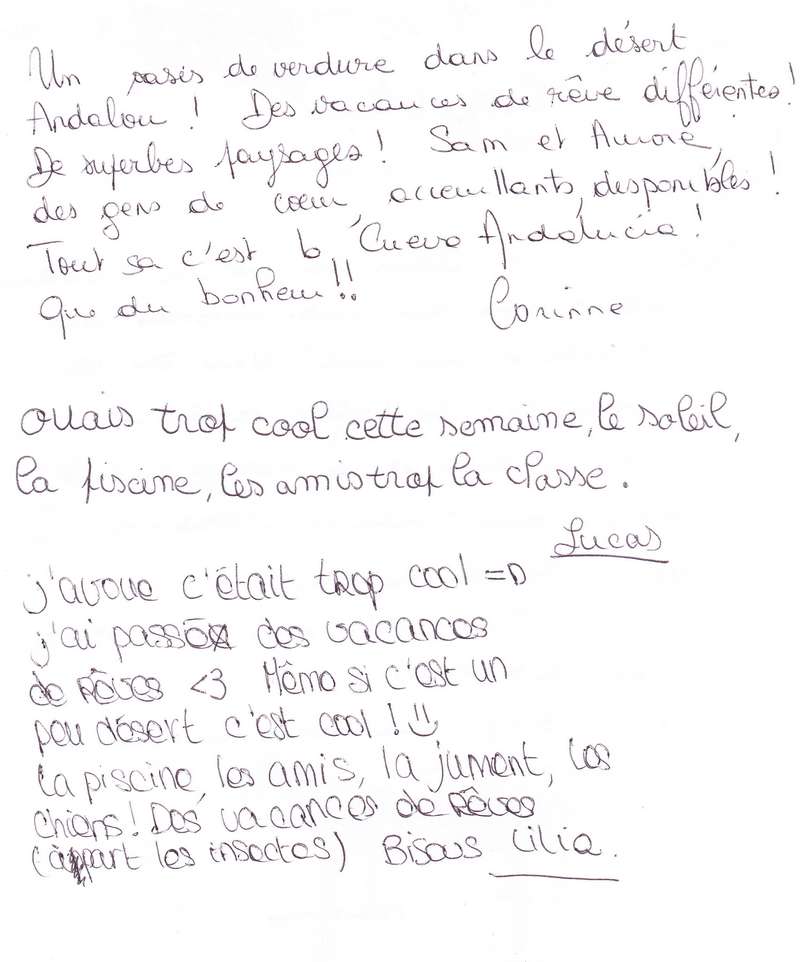 Un oasis de verdure dans le désert
Andalou ! Des vacances de rêve différentes !
De superbes paysages ! Sam et Aurore,
des gens de coeur, acceuillants, desponibles !
Tout sa c'est la Cueva Andalucia !
Que du bonheur !!
Corinne
ouais trop cool cette semaine, le soleil,
la piscine, les amis trop la classe.
Lucas
j'avoue c'était trop cool =D
j'ai passé des vacances
de rêves <3 Même si c'est un
peu désert c'est cool ! :)
la piscine, les amis, la jument, les
chiens ! Des vacances de rêves
(àppart les insectes) Bisous Lilia.